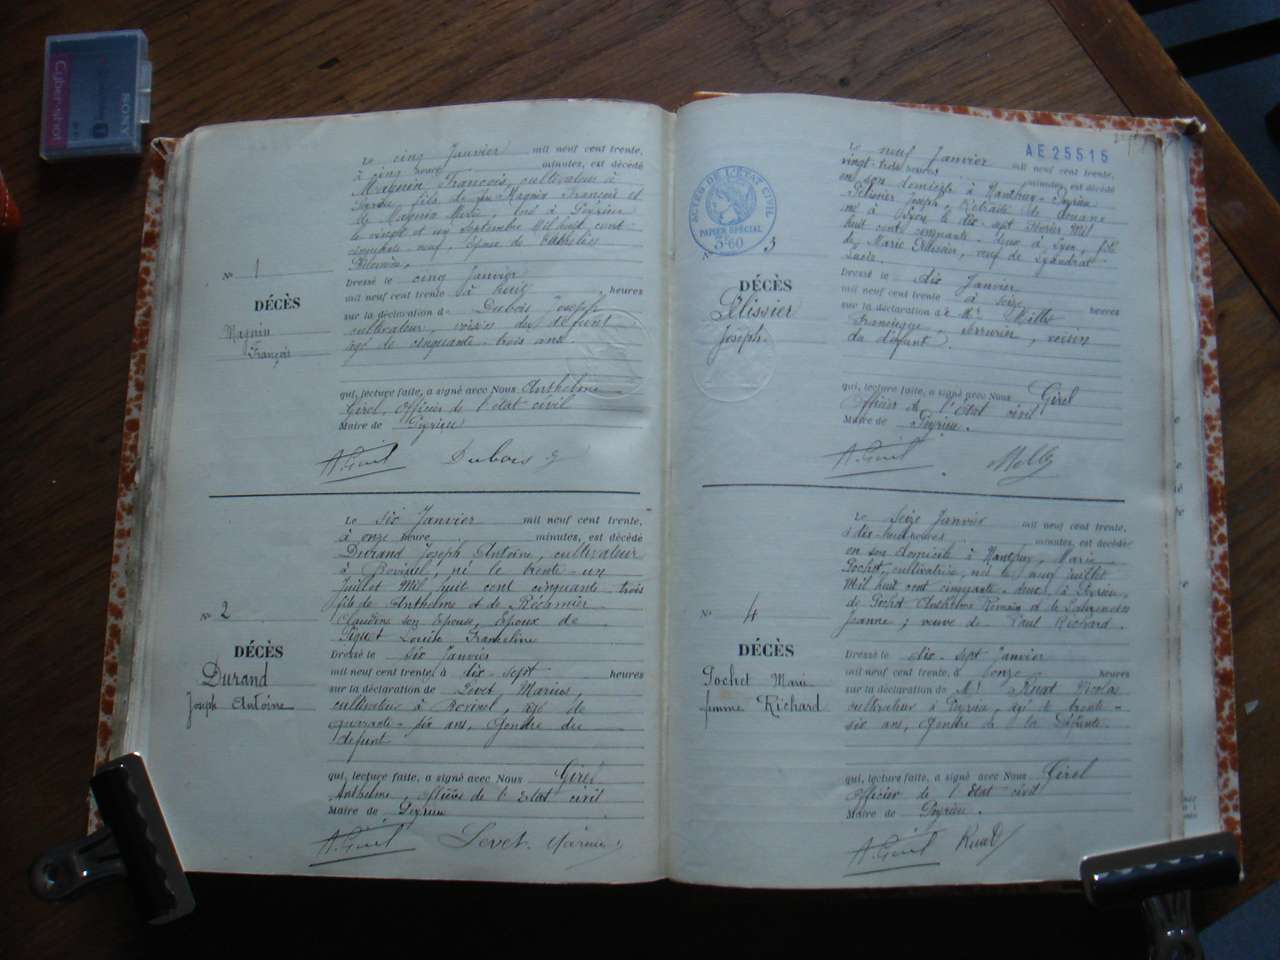 SONY
Cyber-shot
Le cinq Janvier mil neuf cent trente,
à cinq heure minutes, est décédé
Magnin François, cultivateur à
fils de feu Magnin François et
de Magnin né à Peyrieu
le vingt et un Septembre mil huit cent
cinquante neuf, époux de
Philomène.
N° 1
DÉCÈS
Magnin
François
Dressé le cinq Janvier
mil neuf cent trente à huit heures
sur la déclaration de Dubois Joseph
cultivateur, voisin du défunt
âgé de cinquante-trois ans.
qui, lecture faite, a signé avec Nous Anthelme
Girel, Officier de l'état civil
Maire de Peyrieu
A. Girel Dubois J
Le six Janvier mil neuf cent trente,
à onze heure minutes, est décédé
Durand Joseph Antoine, cultivateur
à Bovinel, né le trente-un
Juillet Mil huit cent cinquante trois
fils de Anthelme et de Récamier
Claudine son Epouse, Epoux de
Piquet Louise Franceline
N° 2
DÉCÈS
Durand
Joseph Antoine
Dressé le six Janvier
mil neuf cent trente, à dix-sept heures
sur la déclaration de Levet Marius,
cultivateur à Bovinel, âgé de
quarante-six ans, Gendre du
défunt
qui, lecture faite, a signé avec Nous Girel
Anthelme, officier de l'Etat civil
Maire de Peyrieu
A. Girel Levet Marius
AE 25515
ACTES DE L'ÉTAT CIVIL
PAPIER SPÉCIAL
3F60
Le neuf Janvier mil neuf cent trente,
vingt-trois heures minutes, est décédé
en son domicile à Nantuy-Peyrieu
Pélissier Joseph, Retraité de douane
né à Lyon le dix-sept Février Mil
huit cent cinquante-deux à Lyon, fils
de Marie Pélissier, veuf de
Lucie.
N° 3
DÉCÈS
Pélissier
Joseph.
Dressé le dix Janvier
mil neuf cent trente à seize heures
sur la déclaration de Mr
serrurier, voisin
du défunt.
qui, lecture faite, a signé avec Nous Girel
Officier de l'Etat civil
Maire de Peyrieu.
A. Girel
Le Seize Janvier mil neuf cent trente,
à dix-huit heures minutes, est décédé
en son domicile à Marie
Pochet, cultivatrice, née le neuf juillet
Mil huit cent cinquante-deux à Peyrieu,
de Pochet Anthelme Romain et de
Jeanne; veuve de Paul Richard.
N° 4
DÉCÈS
Pochet Marie
femme Richard
Dressé le dix-sept Janvier
mil neuf cent trente, à onze heures
sur la déclaration de Mr Ruat Nicolas
cultivateur à Peyrieu, âgé de trente-
six ans, Gendre de la Défunte.
qui, lecture faite, a signé avec Nous Girel
Officier de l'Etat civil
Maire de Peyrieu.
A. Girel Ruat